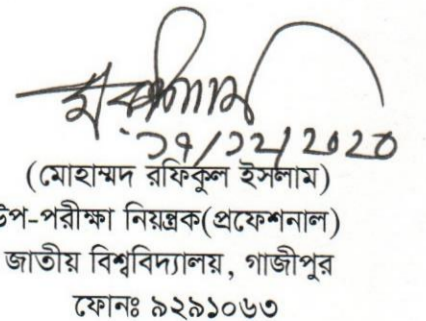 ১৭/১২/২০২০
(মোহাম্মদ রফিকুল ইসলাম)
উপ-পরীক্ষা নিয়ন্ত্রক(প্রফেশনাল)
জাতীয় বিশ্ববিদ্যালয়, গাজীপুর
ফোনঃ ৯২৯১০৬৩